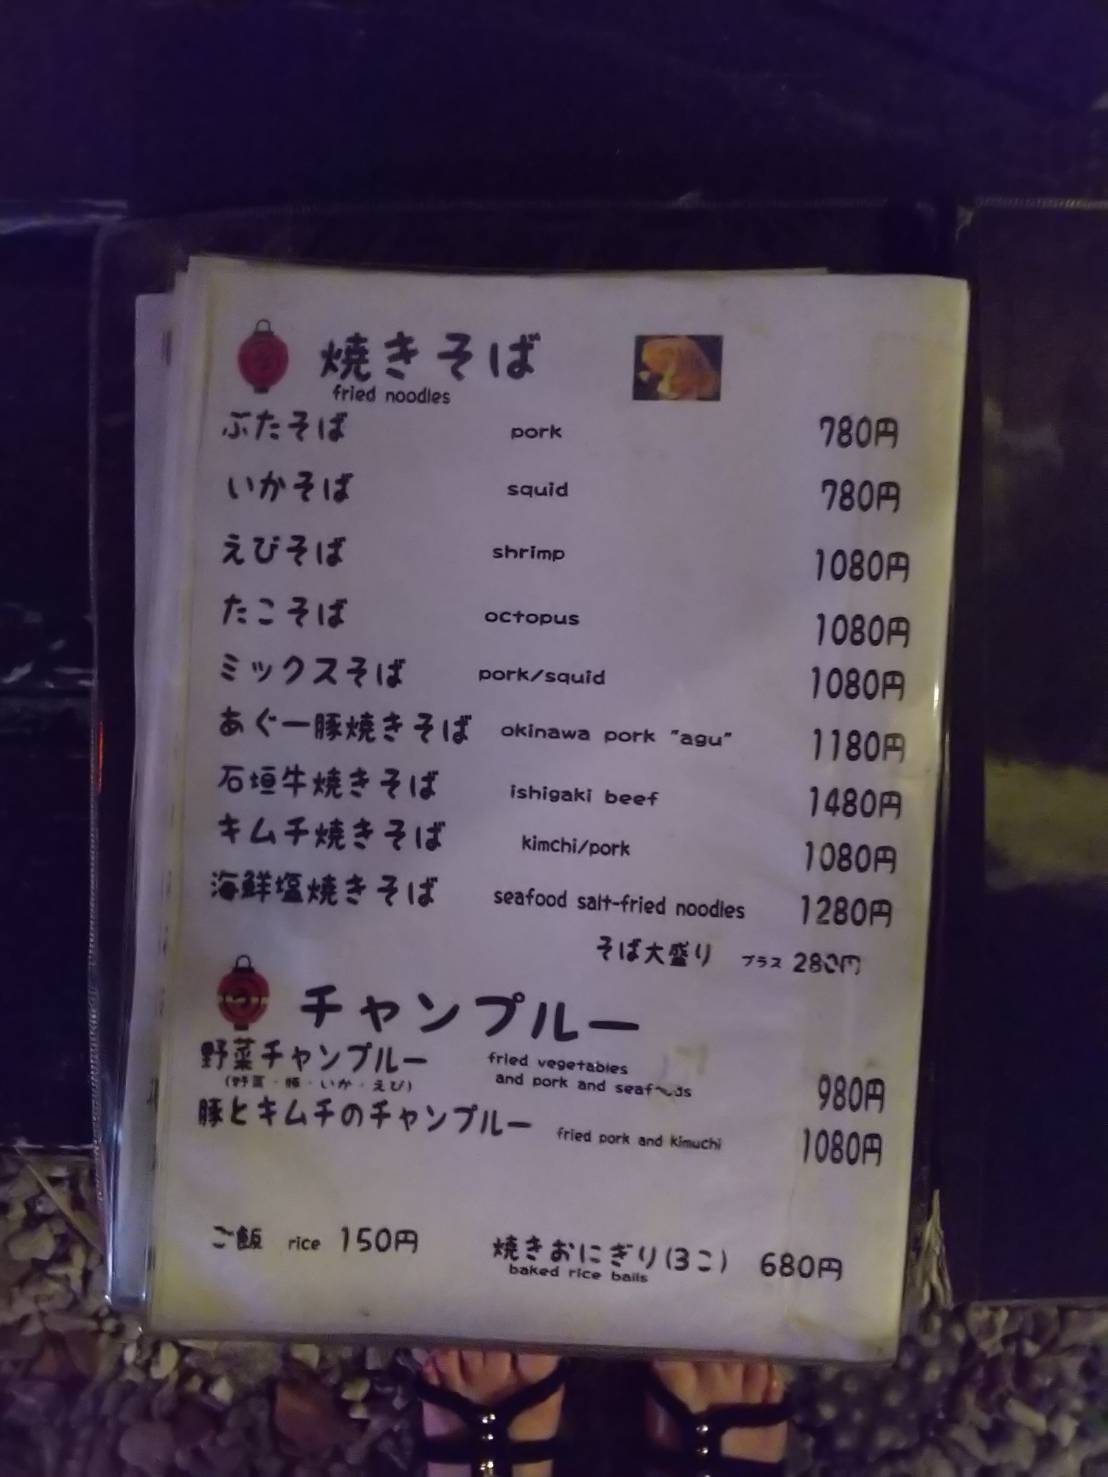 焼きそば
fried noodles
ぶたそば pork 780円
いかそば squid 780円
えびそば shrimp 1080円
たこそば octopus 1080円
ミックスそば pork/squid 1080円
あぐー豚焼きそば okinawa pork "agu" 1180円
石垣牛焼きそば ishigaki beef 1480円
キムチ焼きそば kimchi/pork 1080円
海鮮塩焼きそば seafood salt-fried noodles 1280円
そば大盛り プラス 280円
チャンプルー
野菜チャンプルー fried vegetables
(野菜・豚・いか・えび) and pork and seafoods 980円
豚とキムチのチャンプルー fried pork and kimuchi 1080円
ご飯 rice 150円 焼きおにぎり(3こ) 680円
baked rice balls